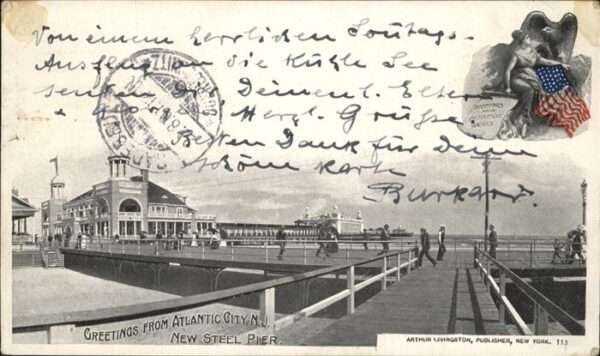 Von einem herrlichen Sonntags-
Ausflug an die Kühle See
senden Dir, Deinen l. Eltern
Herzl. Grüße
Besten Dank für Deine
schöne Karte
Burkard.
GREETINGS FROM ATLANTIC CITY, N.J.
NEW STEEL PIER.
ARTHUR LIVINGSTON, PUBLISHER, NEW YORK. 113